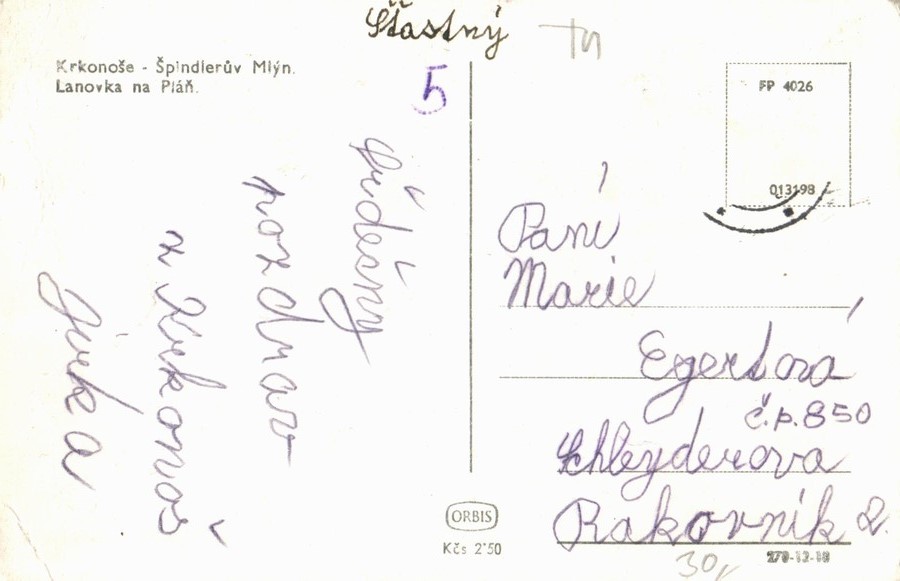 Šťastný
Krkonoše - Špindlerův Mlýn.
Lanovka na Pláň.
5
Srdečný
pozdrav
z Krkonoš
Jirka
FP 4026
013198
Paní
Marie
Egertová
č.p. 850
Schleyderova
Rakovník 2.
ORBIS
Kčs 2'50
30,
270-12-18